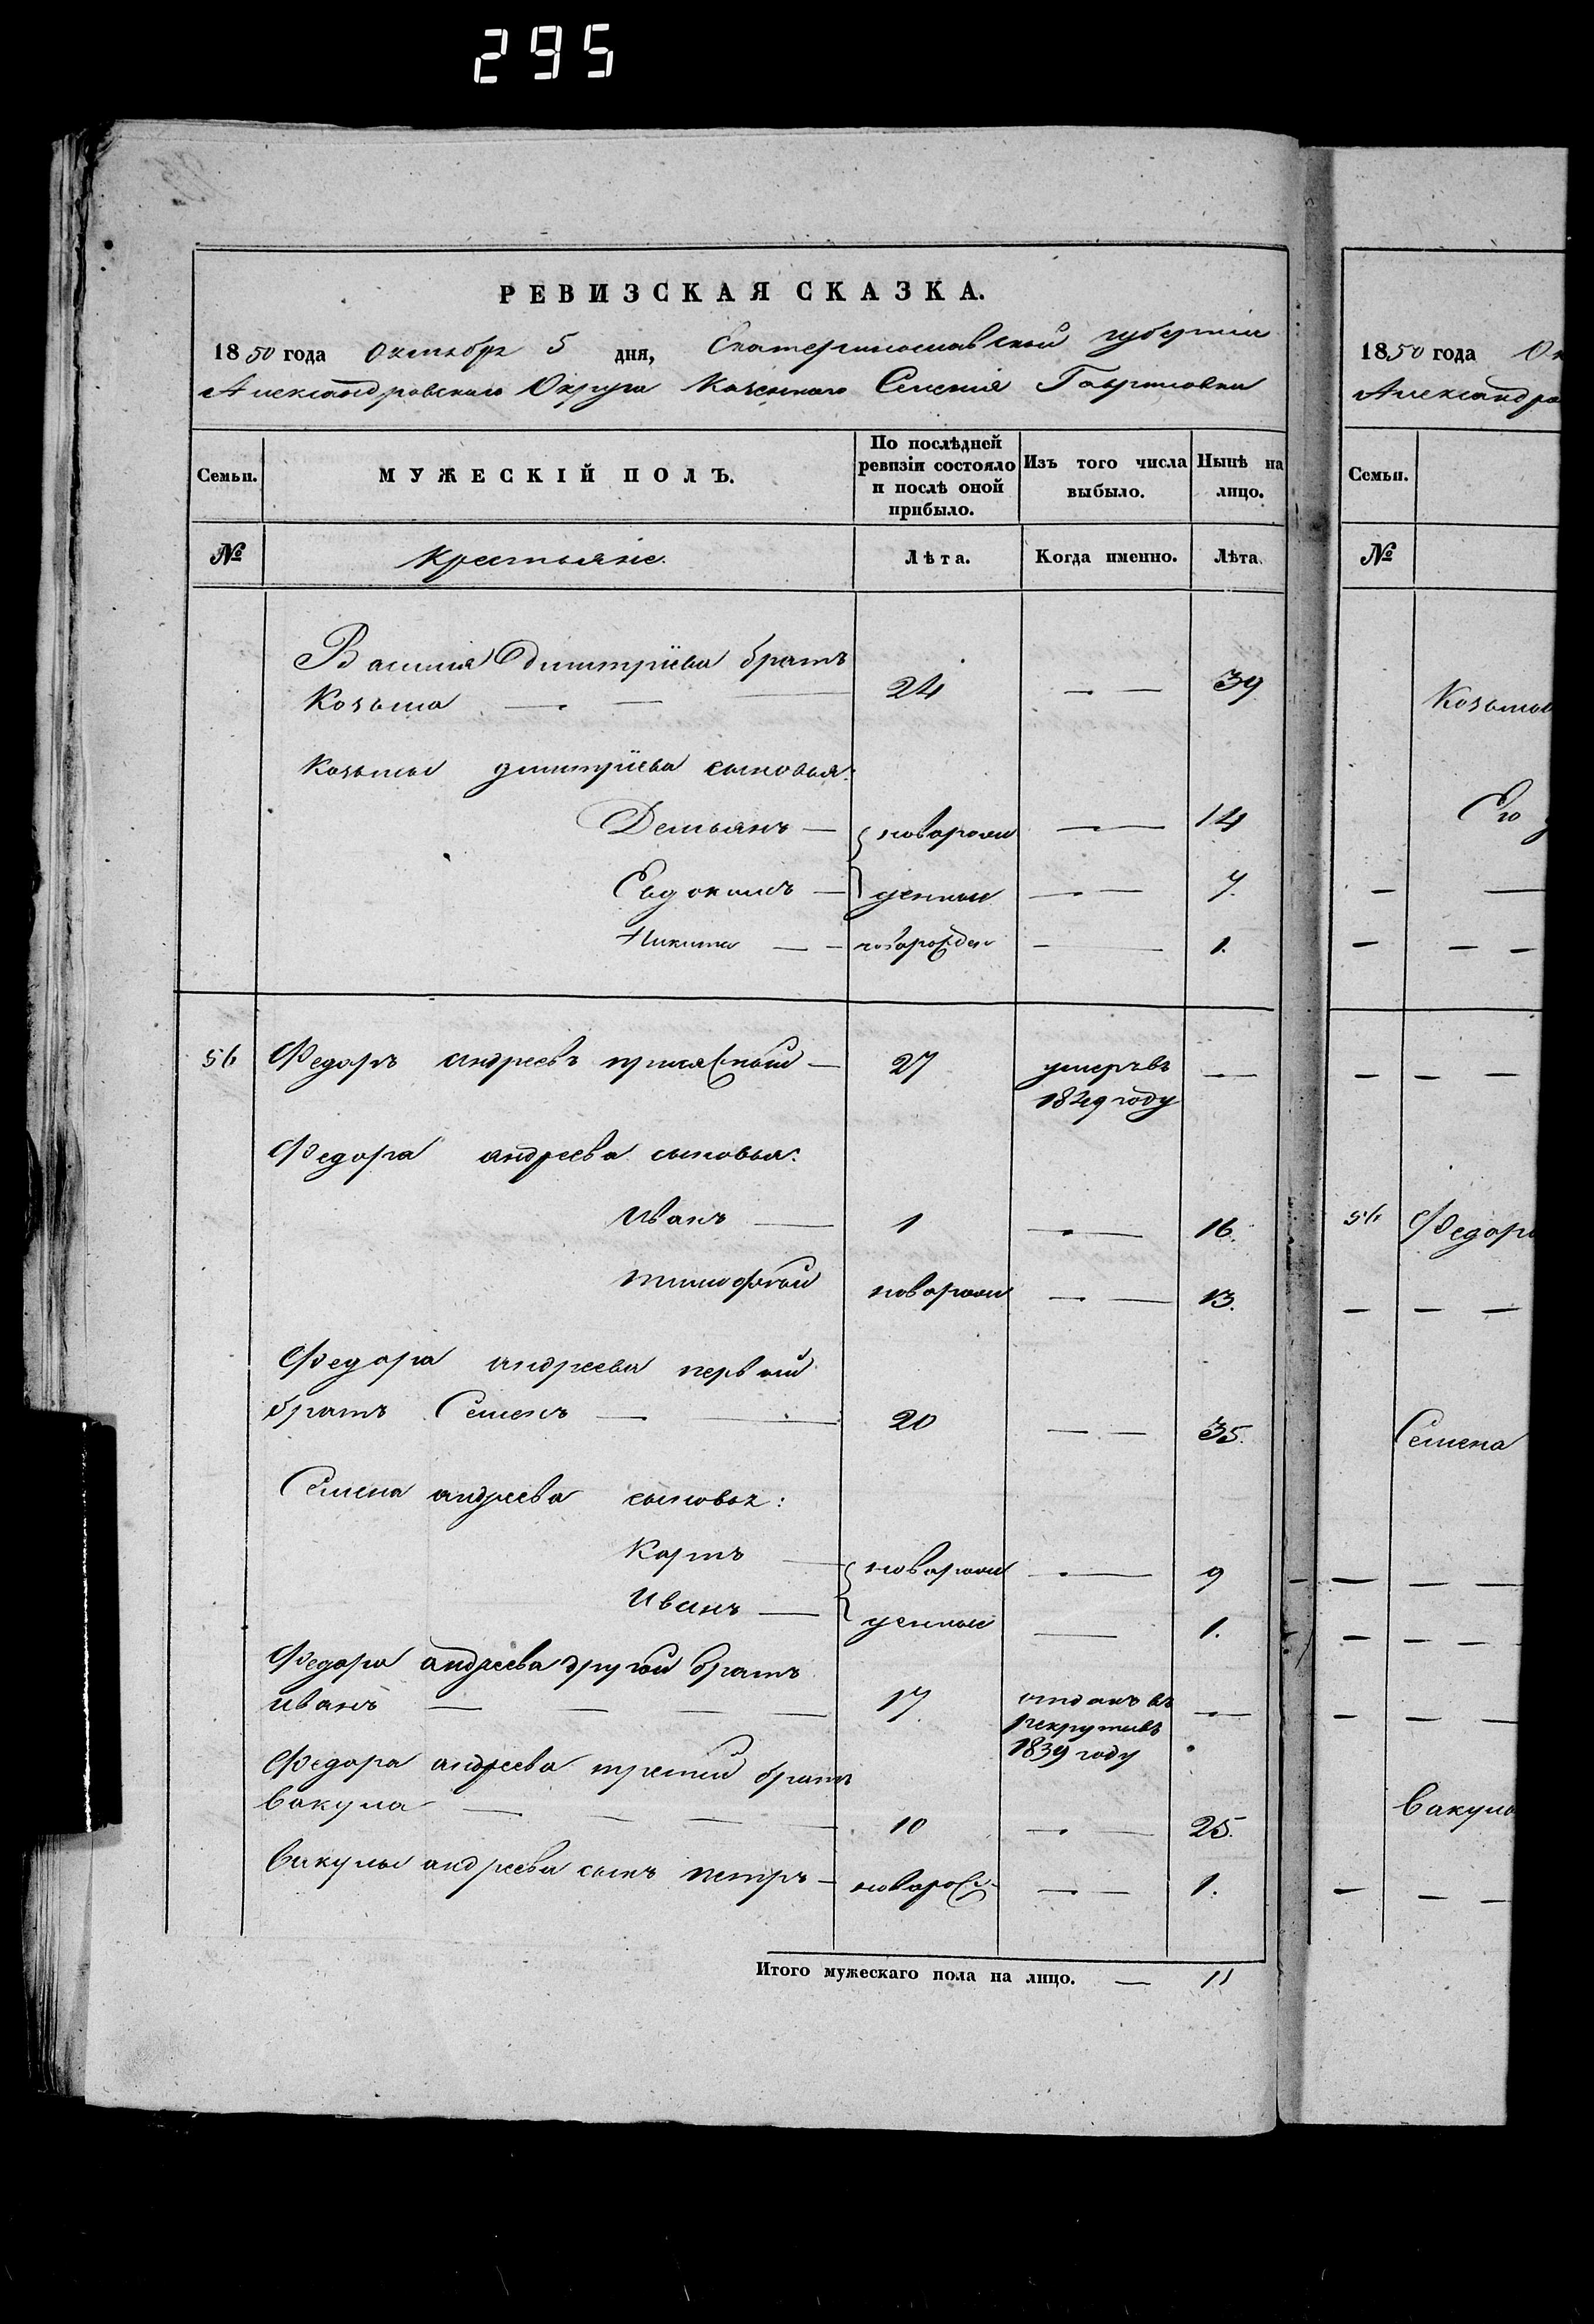 295
РЕВИЗСКАЯ СКАЗКА.
1850 года Октября 5 дня, Екатеринославской губернии
Александровскаго Округа Казеннаго Селенія Гавриловки
Семьи.
МУЖЕСКІЙ ПОЛЪ.
По послѣдней ревизіи состояло и послѣ оной прибыло.
Изъ того числа выбыло.
Нынѣ на лицо.
№ Крестьяне. Лѣта. Когда именно. Лѣта.
Василія Дмитріева братъ
Козьма — — 24 — — 39
Козьмы Дмитріева сыновья:
Демьянъ — новорож — 14
Евдокимъ — денные — 7.
Никита — — новорожден — 1.
56 Федоръ Андреевъ — 27 умеръ въ —
1849 году
Федора Андреева сыновья:
Иванъ — 1 — 16.
Тимофѣй новорож — — 13.
Федора Андреева первый
братъ Семенъ — — 20 — — 35.
Семена Андреева сыновья:
Карпъ — новорож — 9
Иванъ — денные — 1.
Федора Андреева другой братъ
Иванъ — — — — 17 отданъ въ —
рекруты въ
1839 году
Федора Андреева третій братъ
Вакула — — — — 10 — 25.
Вакулы Андреева сынъ Петръ — новорож — — 1.
Итого мужескаго пола на лицо. — 11
1850 года Ок
Александро
Семьи.
№
Козьмы
Его
56 Федора
Семена
Вакулы